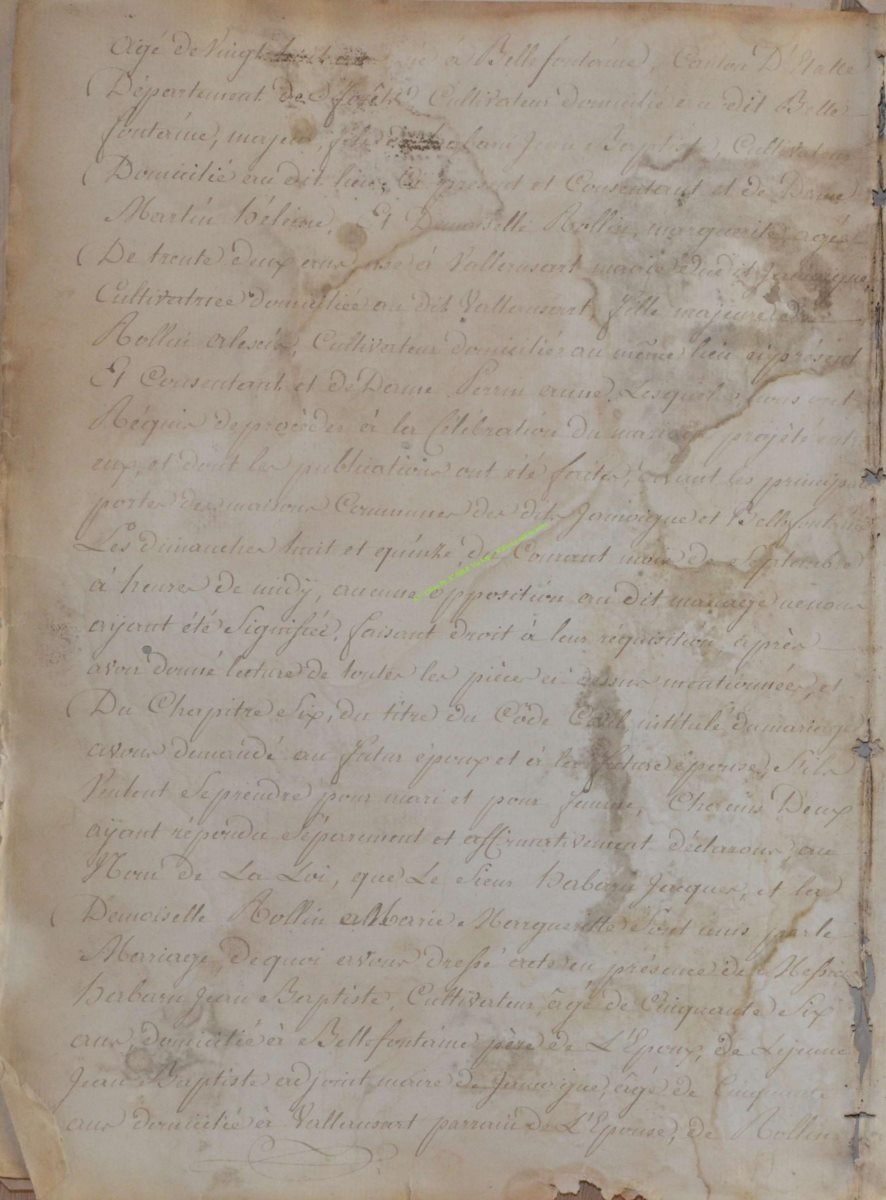 agé de Vingt né à Bellefontaine, Canton D'Etalle
Département des forêts Cultivateur domicilié au dit Belle
fontaine, majeur, fils de habaru Jean Baptiste, Cultivateur
Domicilié au dit lieu, ci présent et Consentant et de Dame
Martin hélène, Et Demoiselle Rollin, marguerite, agée
De trente deux ans, née à Vallansart mairie dudit Jamoigne,
Cultivatrice domiciliée au dit Vallansart, fille majeure de
Rollin alexis, Cultivateur domicilié au même lieu ci présent
Et Consentant et de Dame Perrin anne, Lesquels nous ont
Réquis de procéder à la Célébration du mariage projété entre
eux, et dont les publications ont été faites, devant les principales
portes des maisons Communes des dits Jamoigne et Bellefontaine
Les dimanches huit et quinze du Courant mois de Septembre
à heure de midÿ, aucune opposition au dit mariage ne nous
aÿant été Signifiée, faisant droit à leur réquisition, après
avoir donné lecture de toutes les pièces ci dessus mentionnées, et
Du Chapitre Six, du titre du Côde Civil intitulé du mariage
avons demandé au futur époux et à la future épouse, S'ils
Veulent Se prendre pour mari et pour femme, Chacuns Deux
aÿant répondu Séparement et affirmativement déclarons, au
Nom de La Loi, que Le Sieur habaru Jacques, et la
Demoiselle Rollin Marie Marguerite Sont unis par le
Mariage, de quoi avons dressé acte en présence de Messieurs
habaru Jean Baptiste, Cultivateur, âgé de Cinquante Six
ans, domicilié à Bellefontaine père de L'Epoux, de Lejeune
Jean Baptiste adjoint maire de Jamoigne, âgé de Cinquante
ans domicilié à Vallansart parrain de L'Epouse, de Rollin